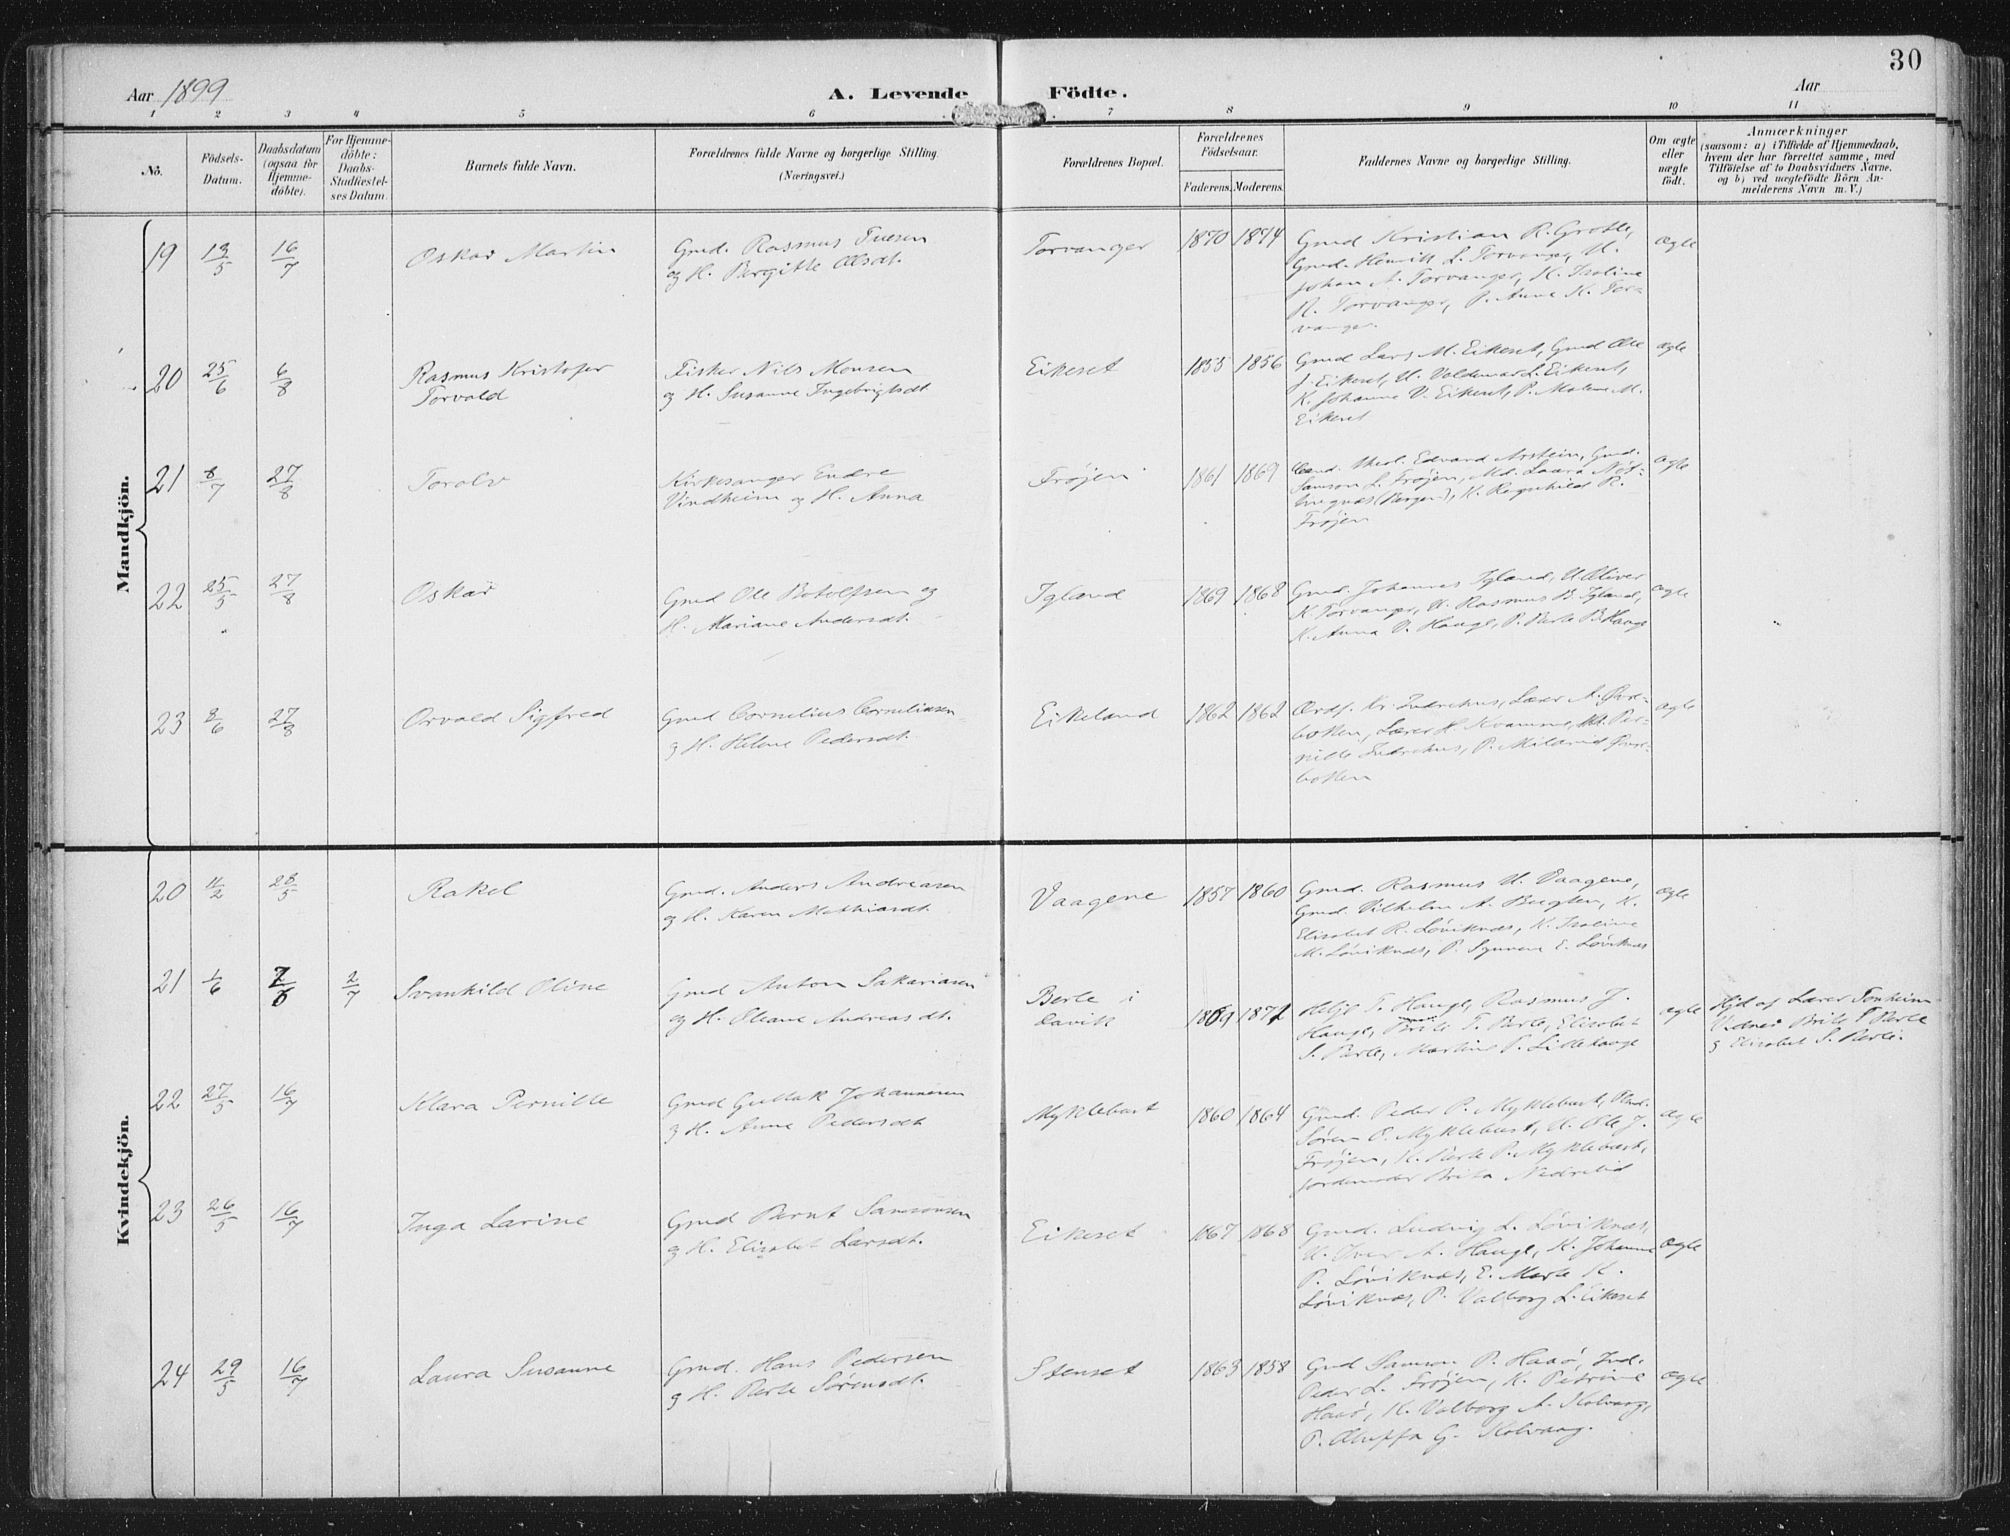 30
Aar 1899
A. Levende
Födte.
Aar
1 2 3 4 5 6 7 8 9 10 11
No.
Födsels-
Datum.
Daabsdatum
(ogsaa for
Hjemme-
döbte).
For Hjemme-
döbte:
Daabs-
Stadfæstel-
ses Datum.
Barnets fulde Navn.
Forældrenes fulde Navne og borgerlige Stilling.
(Næringsvei.)
Forældrenes Bopæl.
Forældrenes
Födselsaar.
Faderens. Moderens.
Faddernes Navne og borgerlige Stilling.
Om ægte
eller
uægte
födt.
Anmærkninger
(saasom: a) i Tilfælde af Hjemmedaab,
hvem der har forrettet samme, med
Tilföielse af to Daabsvidners Navne.
og b) ved uægtefödte Börn An-
melderens Navn m. V.)
Mandkjön.
19 13/5 16/7
Oskar Martin
Gmd. Rasmus
og H. Bergitte Olsdt.
Torvanger
1870 1874
Gmd Kristian R. Grotle,
Gmd. Henrik L. Torvanger, U.
Johan A. Torvanger, K.
R. Torvanger, P. Anna K. Tor
vanger.
ægte
20 25/6 6/8
Rasmus Kristofer
Torvald
Fisker Nils Monsen
og H. Susanne Ingebrigtsdt
Eikeset
1855 1856
Gmd Lars M. Eikeset, Gmd Ole
J. Eikeset, U. Valdemar L. Eikeset,
K. Johanne V. Eikeset, P. Malene M.
Eikeset
ægte
21 8/7 27/8
Toralv
Kirkesanger Endre
Vindheim og H. Anna
Frøjen
1861 1869
Cand. theol. Edvard Arstein, Gmd.
Samson L. Frøjen, Md. Laura
(Bergen), K. Ragnhild R.
Frøjen
ægte
22 25/5 27/8
Oskar
Gmd Ole Botolfsen og
H. Mariane Andersdt.
Igland
1869 1868
Gmd. Johannes Igland, U Oliver
K. Torvanger, U. Rasmus B. Igland,
K. Anna V. Hauge, P. Berte B. Hauge
ægte
23 8/6 27/8
Orvald Sigfred
Gmd Cornelius Corneliusen
og H. Helene Pedersdt.
Eikeland
1862 1862
Ordf. Kr. Indrehus, Lærer A. Øvre-
botten, Lærer H. Kvamme, Md. Per-
nille Indrehus, P. Mildrid Øvre-
botten
ægte
Kvindekjön.
20 11/2 28/5
Rakel
Gmd. Anders Andreasen
og H. Karen Mathiasdt.
Vaagene
1857 1860
Gmd. Rasmus U. Vaagene,
Gmd. Vilhelm A. K.
Elisabet R. Løviknæs, K.
M. Løviknæs, P. Synneve E. Løviknæs
ægte
21 1/6 2/7
Svanhild Oline
Gmd Anton Sakariasen
og H. Oleane Andreasdt.
Berle i
Davik
1869 1871
Helje T. Hauge, Rasmus J.
Hauge, Brite T. Berle, Elisabet
S. Berle, Martine P. Lillehauge
ægte
Hjd af Lærer Tonheim
Vidner Brite T Berle
og Elisabet S. Berle.
22 27/5 16/7
Klara Pernille
Gmd Gullak Johannesen
og H. Anne Pedersdt
Myklebust
1860 1864
Gmd. Peder P. Myklebust,
Søren P. Myklebust, U. Ole J.
Frøjen, K. Berte P. Myklebust,
Jordemoder Brita
ægte
23 26/5 16/7
Inga Larine
Gmd Bernt Samsonsen
og H. Elisabet Larsdt.
Eikeset
1867 1868
Gmd. Ludvig L. Løviknæs,
U. Iver A. Hauge, K. Johanne
P. Løviknæs, E. Marte K.
Løviknæs, P. Valborg L. Eikeset
ægte
24 29/5 16/7
Laura Susanne
Gmd. Hans Pedersen
og H. Berte Sørensdt.
Stenset
1863 1858
Gmd Samson P. Havø, Ind.
Peder L. Frøjen, K. Petrine
Havø, K. Valborg A. Kolvaag,
P. G. Kolvaag.
ægte